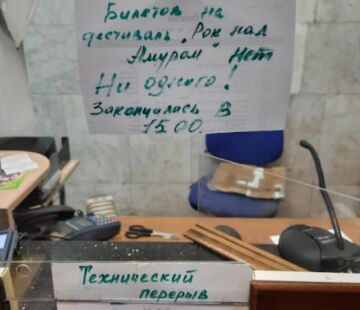 Билетов на
фестиваль „Рок над
Амуром" Нет
Ни одного!
Закончились В
15.00.
Технический
перерыв